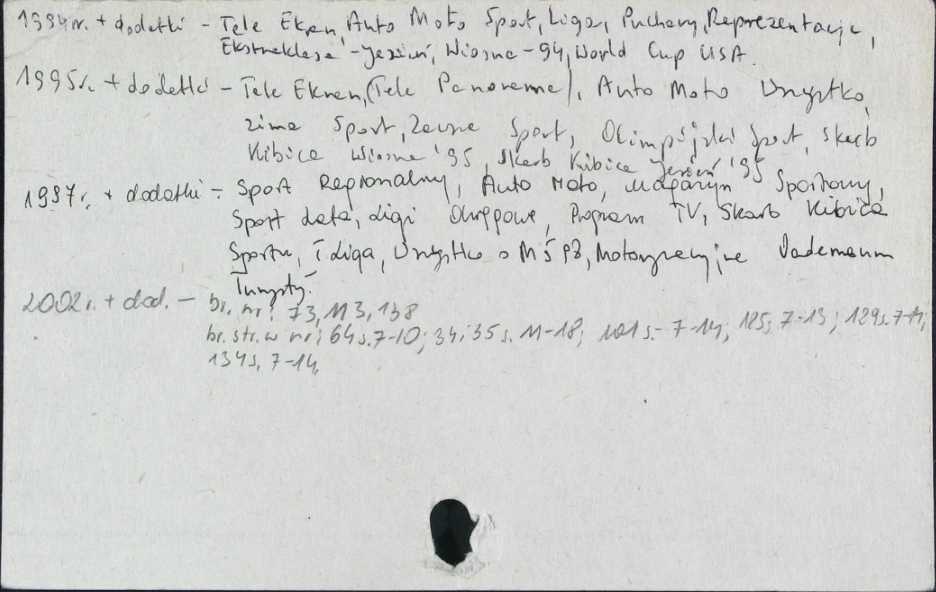 1994r. + dodatki - Tele Ekran, Auto Moto Sport, Liga, Puchary, Reprezentacje,
Ekstraklasa - Jesień, Wiosna - 94, World Cup USA.
1995r. + dodatki - Tele Ekran, (Tele Panorama), Auto Moto Wszystko,
Zima Sport, Sport, Olimpijski Sport, Skarb
Kibica Wiosna '95, Skarb Kibica Jesień '95
1997r. + dodatki - Sport Regionalny, Auto Moto, Magazyn Sportowy,
Sport lata, Ligi Okręgowe, Program TV, Skarb Kibica
Sportu, I Liga, Wszystko o MŚ 98, Motoryzacyjne Vademecum
Turysty.
2002r. + dod. - br. nr: 73, 113, 138
br. str. w nr: 64 s. 7-10; 34; 35 s. 11-18; 101 s. 7-14; 125; 7-13; 129 s. 7-14;
134 s. 7-14,